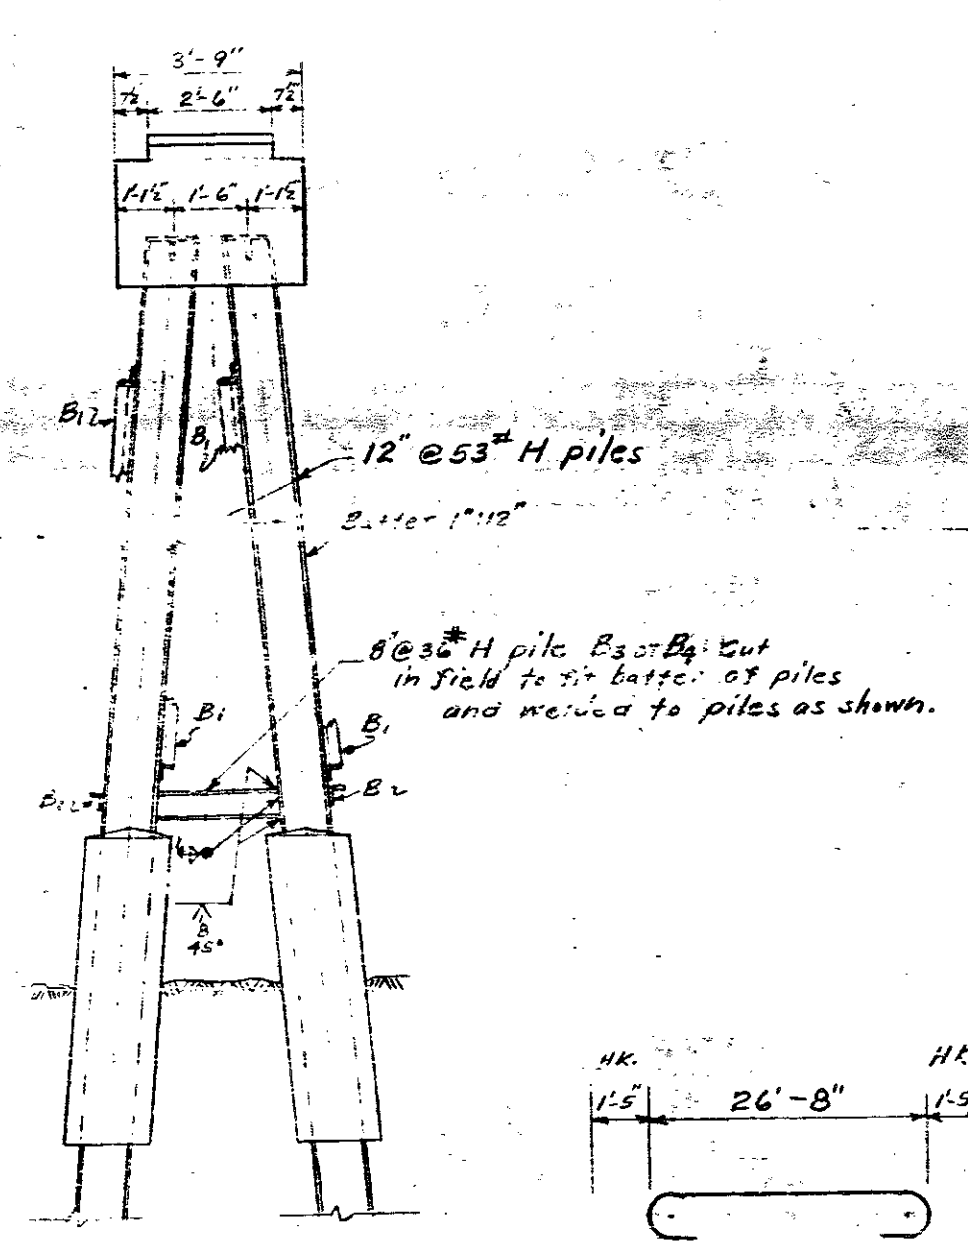 3'-9"
7½ 2'-6" 7½"
1'-1½" 1'-6" 1'-1½"
B12
B1
12" @ 53# H piles
Batter 1":12"
8" @ 36# H pile B3 or B4 cut
in field to fit batter of piles
and welded to piles as shown.
B1
B1
B2
B
45°
HK.
1'-5"
26'-8"
1'-5